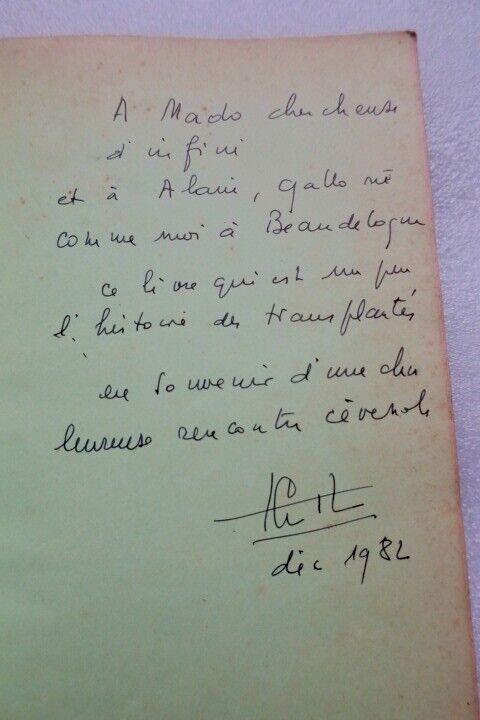 A Mado chercheuse
d'infini
et à Alain, gallo né
comme moi à
ce livre qui est un peu
l'histoire des transplantés
en souvenir d'une cha
leureuse rencontre cévenole
déc 1982